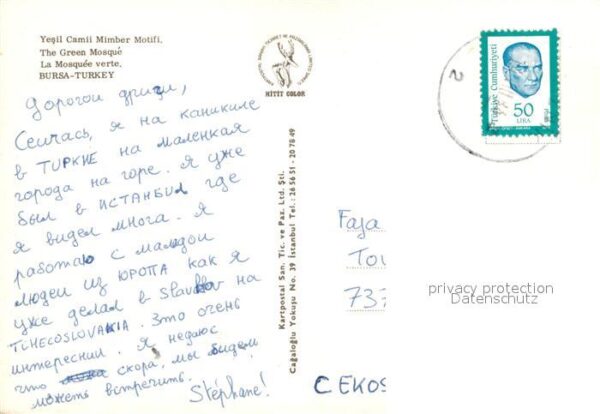 Yeşil Camii Mimber Motifi,
The Green Mosqué
La Mosquée verte,
BURSA-TURKEY
HİTİT COLOR
Дорогои друзи,
Сеичась, я на каникиле
в TURKИE на маленкая
города на горе. Я уже
был в ИСТАНБУЛ где
я видел многа. Я
работаю с маладои
людеи из ЮРОПА как я
уже делал в Slavkov на
TCHECOSLOVAKIA. Это очень
интереснии. Я недюс
что скора, мы будем
можеть встречить.
Stéphane!
Kartpostal San. Tic. ve Paz. Ltd. Şti.
Cağaloğlu Yokuşu No. 39 İstanbul Tel.: 26 56 51 - 20 78 49
Türkiye Cumhuriyeti
50
LIRA
2
Faja
Tou
737
CEKOS
privacy protection
Datenschutz